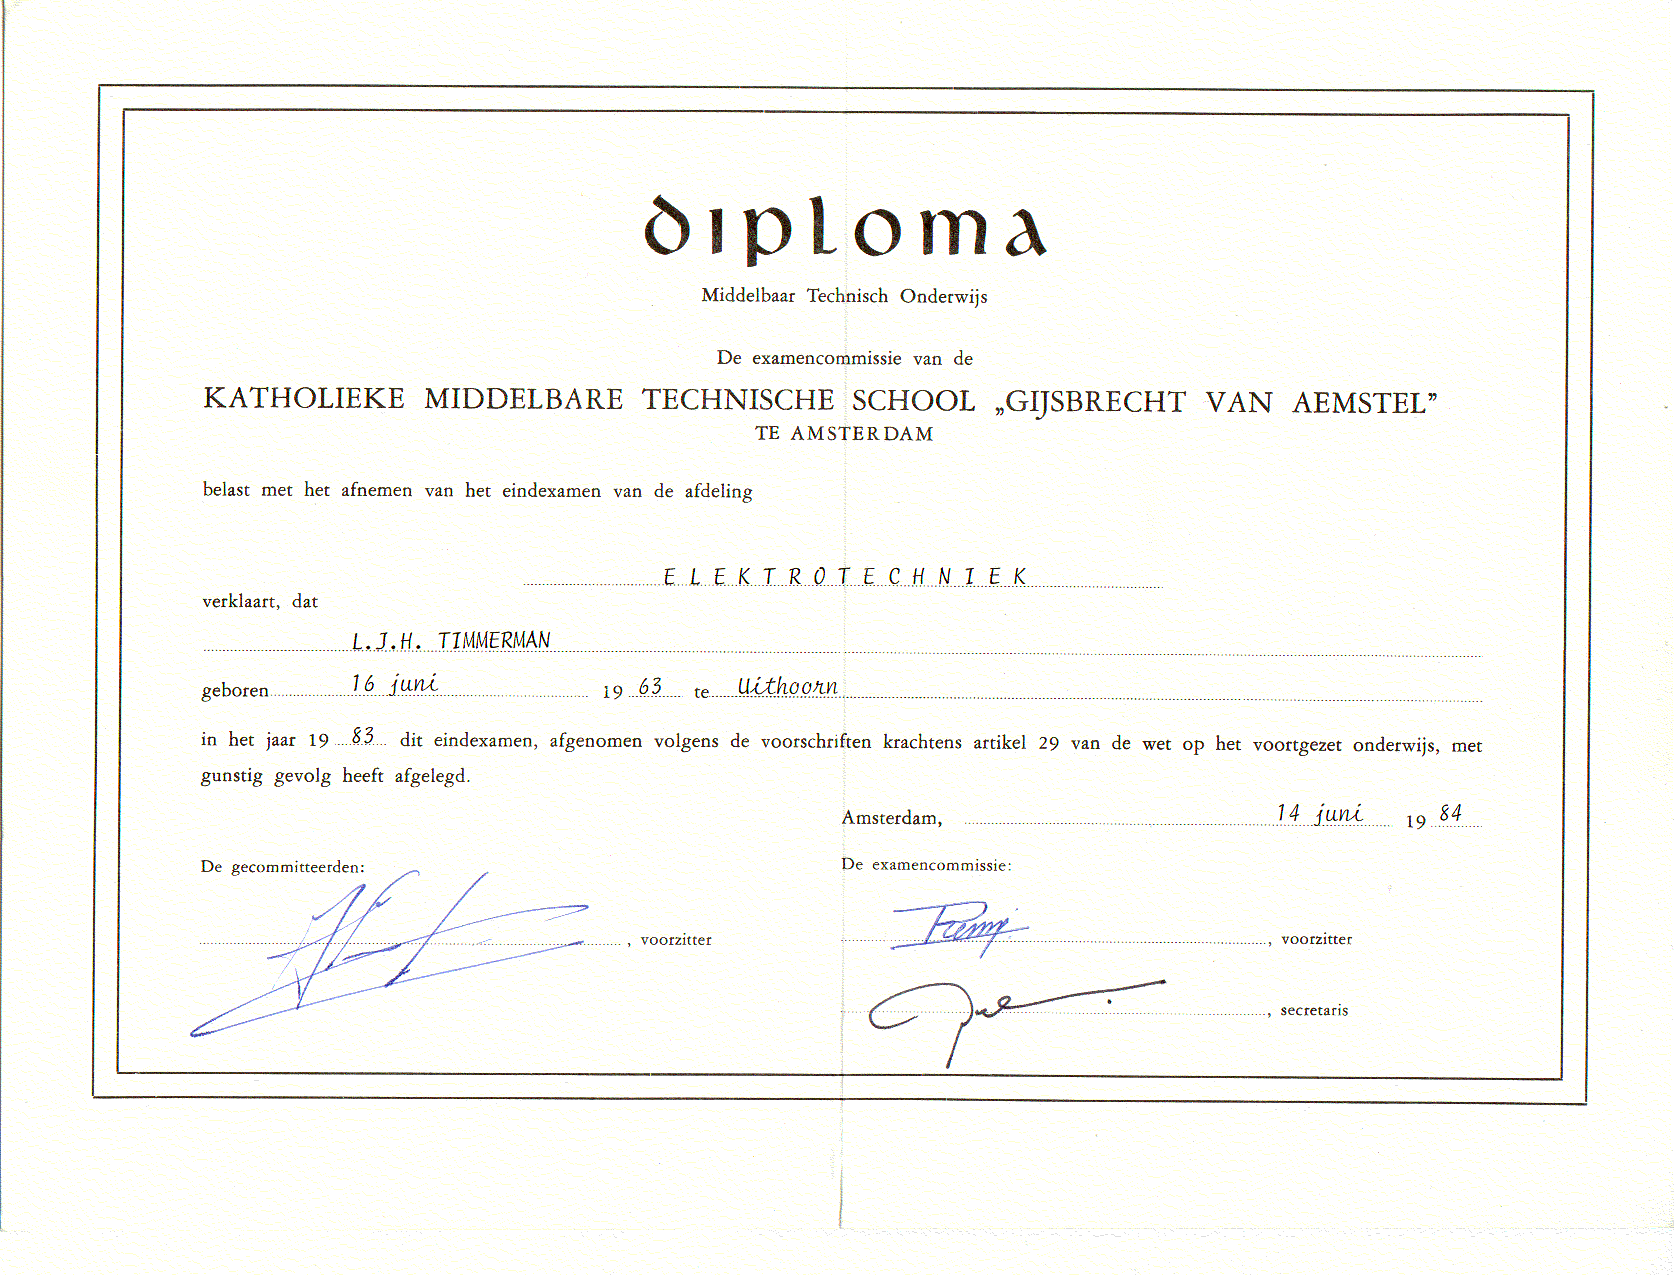 diploma
Middelbaar Technisch Onderwijs
De examencommissie van de
KATHOLIEKE MIDDELBARE TECHNISCHE SCHOOL „GIJSBRECHT VAN AEMSTEL”
TE AMSTERDAM
belast met het afnemen van het eindexamen van de afdeling
ELEKTROTECHNIEK
verklaart, dat
L.J.H. TIMMERMAN
geboren 16 juni 1963 te Uithoorn
in het jaar 1983 dit eindexamen, afgenomen volgens de voorschriften krachtens artikel 29 van de wet op het voortgezet onderwijs, met
gunstig gevolg heeft afgelegd.
Amsterdam, 14 juni 1984
De gecommitteerden:
De examencommissie:
, voorzitter
, voorzitter
, secretaris